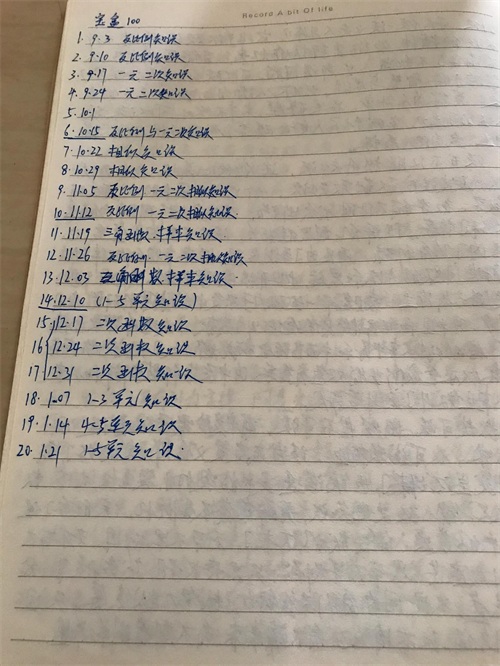 Record A bit Of life
宝盒 100
1. 9.3 反比例知识
2. 9.10 反比例知识
3. 9.17 一元二次知识
4. 9.24 一元二次知识
5. 10.1
6. 10.15 反比例与一元二次知识
7. 10.22 相似知识
8. 10.29 相似知识
9. 11.05 反比例 一元二次 相似知识
10. 11.12 反比例 一元二次 相似知识.
11. 11.19 三角函数.样本知识.
12. 11.26 反比例 一元二次 相似知识.
13. 12.03 三角函数.样本知识.
14. 12.10 (1-5单元知识)
15. 12.17 二次函数知识
16 12.24 二次函数知识
17 12.31 二次函数知识
18. 1.07 1-3单元知识
19. 1.14 4-5单元知识
20. 1.21 1-5单元知识.